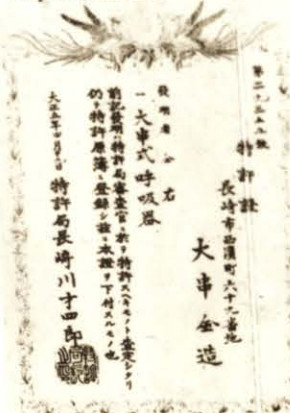 第二九三五九號
特許證
長崎市西濱町六十九番地
大串金造
發明者 仝右
一 大串式呼吸器
前記發明ハ特許局審査官ニ於テ特許スヘキモノト査定シタリ
仍テ特許原簿ニ登録シ茲ニ本證ヲ下付スルモノ也
大正五年四月 日
特許局長﨑川才四郎